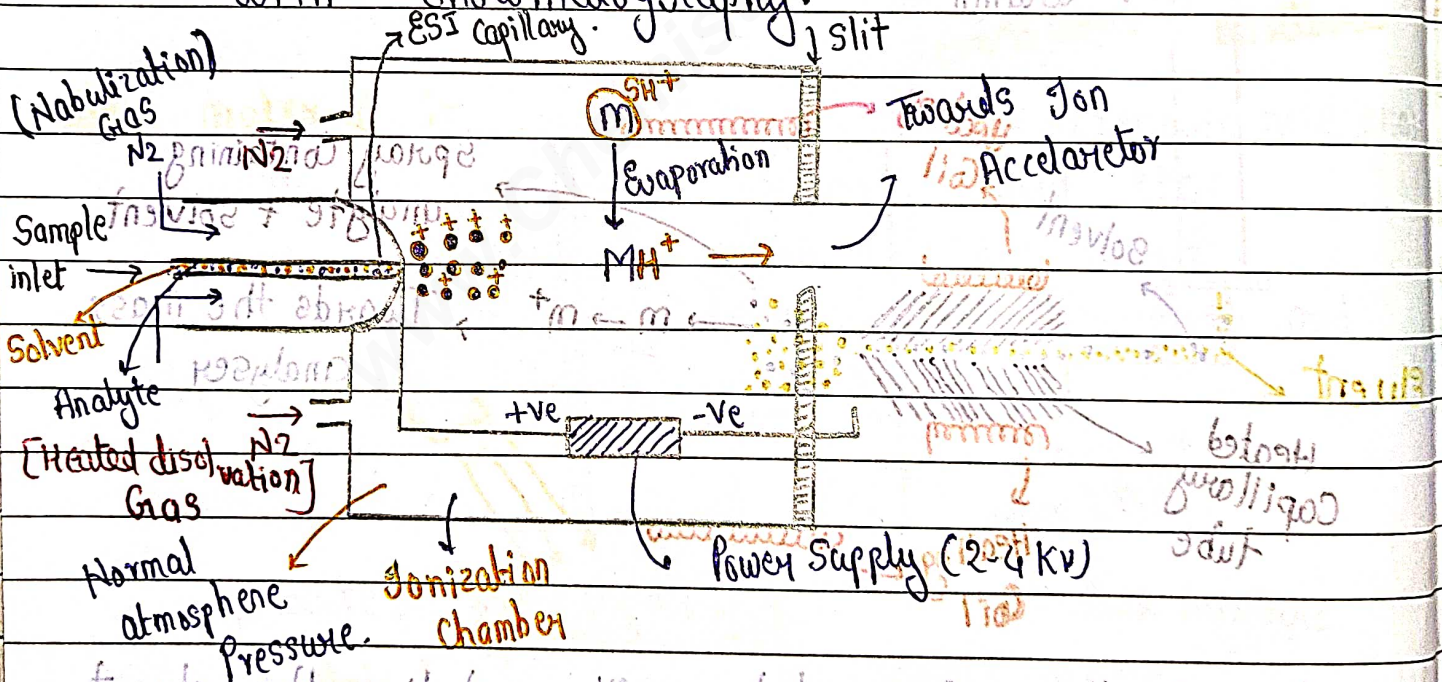 with chromatography.
ESI Capillary.
Slit
(Nabulization)
Gas
N2
N2
SH+
m
Towards Ion
Accelaretor
Evaporation
Sample
inlet
MH+
Solvent
Analyte
+ve
-ve
N2
[Heated disolvation]
Gas
Normal
atmosphere
Pressure.
Ionization
Chamber
Power Supply (2-4 KV)